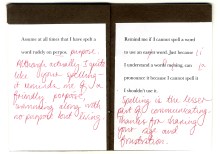 Assume at all times that I have spell a
word rudely on porpos. purpose.
Although actually I quite
like your spelling-
it reminds me of a
friendly porpoise,
swimming along with
no purpose but living.
Remind me if I cannot spell a word
to use an easier word. Just because
I understand a words meaning, can
pronounce it because I cannot spell it
I shouldn't use it.
Spelling is the lesser
part of communicating.
Thanks for sharing
your rage and
frustration.